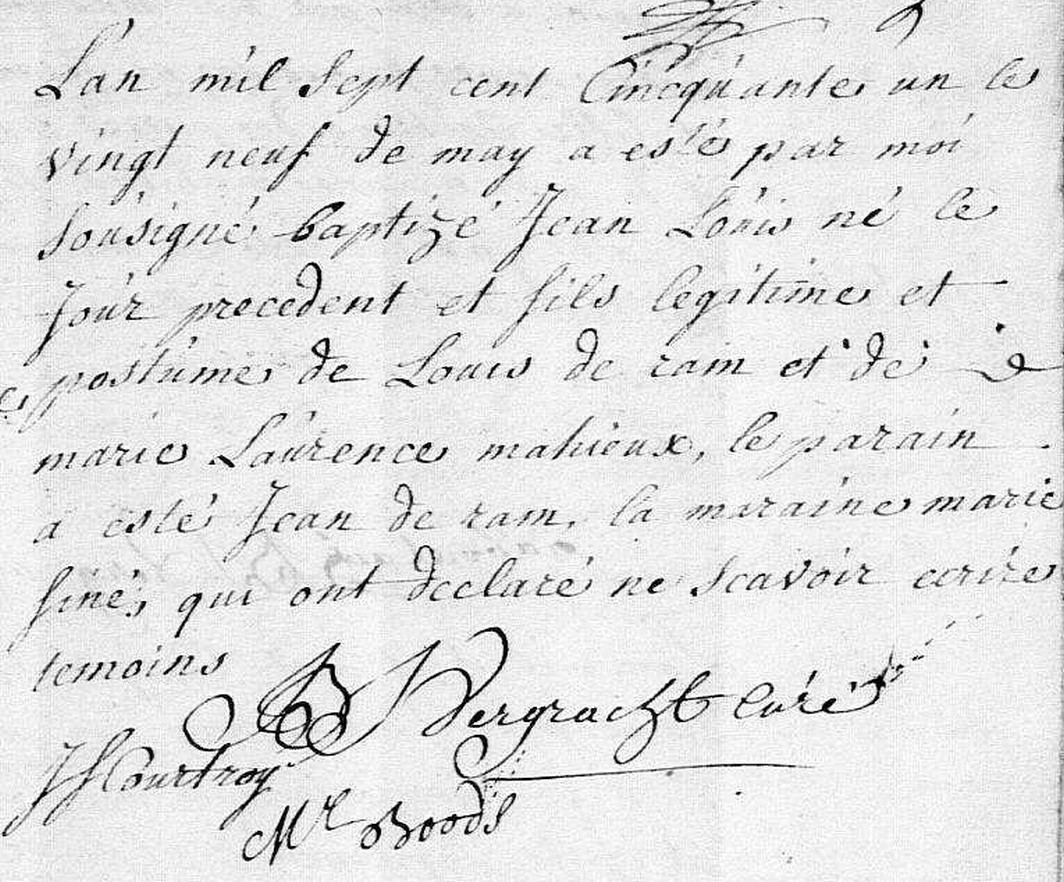 Lan mil sept cent Cincquante un le
vingt neuf de may a esté par moi
soüsigné baptizé Jean Loüis né le
Joür precedent et fils legitime et
postüme de Louis de ram et de
marie Laürence mahieux, le parain
a esté Jean de ram, la maraine marie
finé, qui ont declaré ne scavoir ecrire
temoins
Vergracht Curé
JF Courtroy
Boods